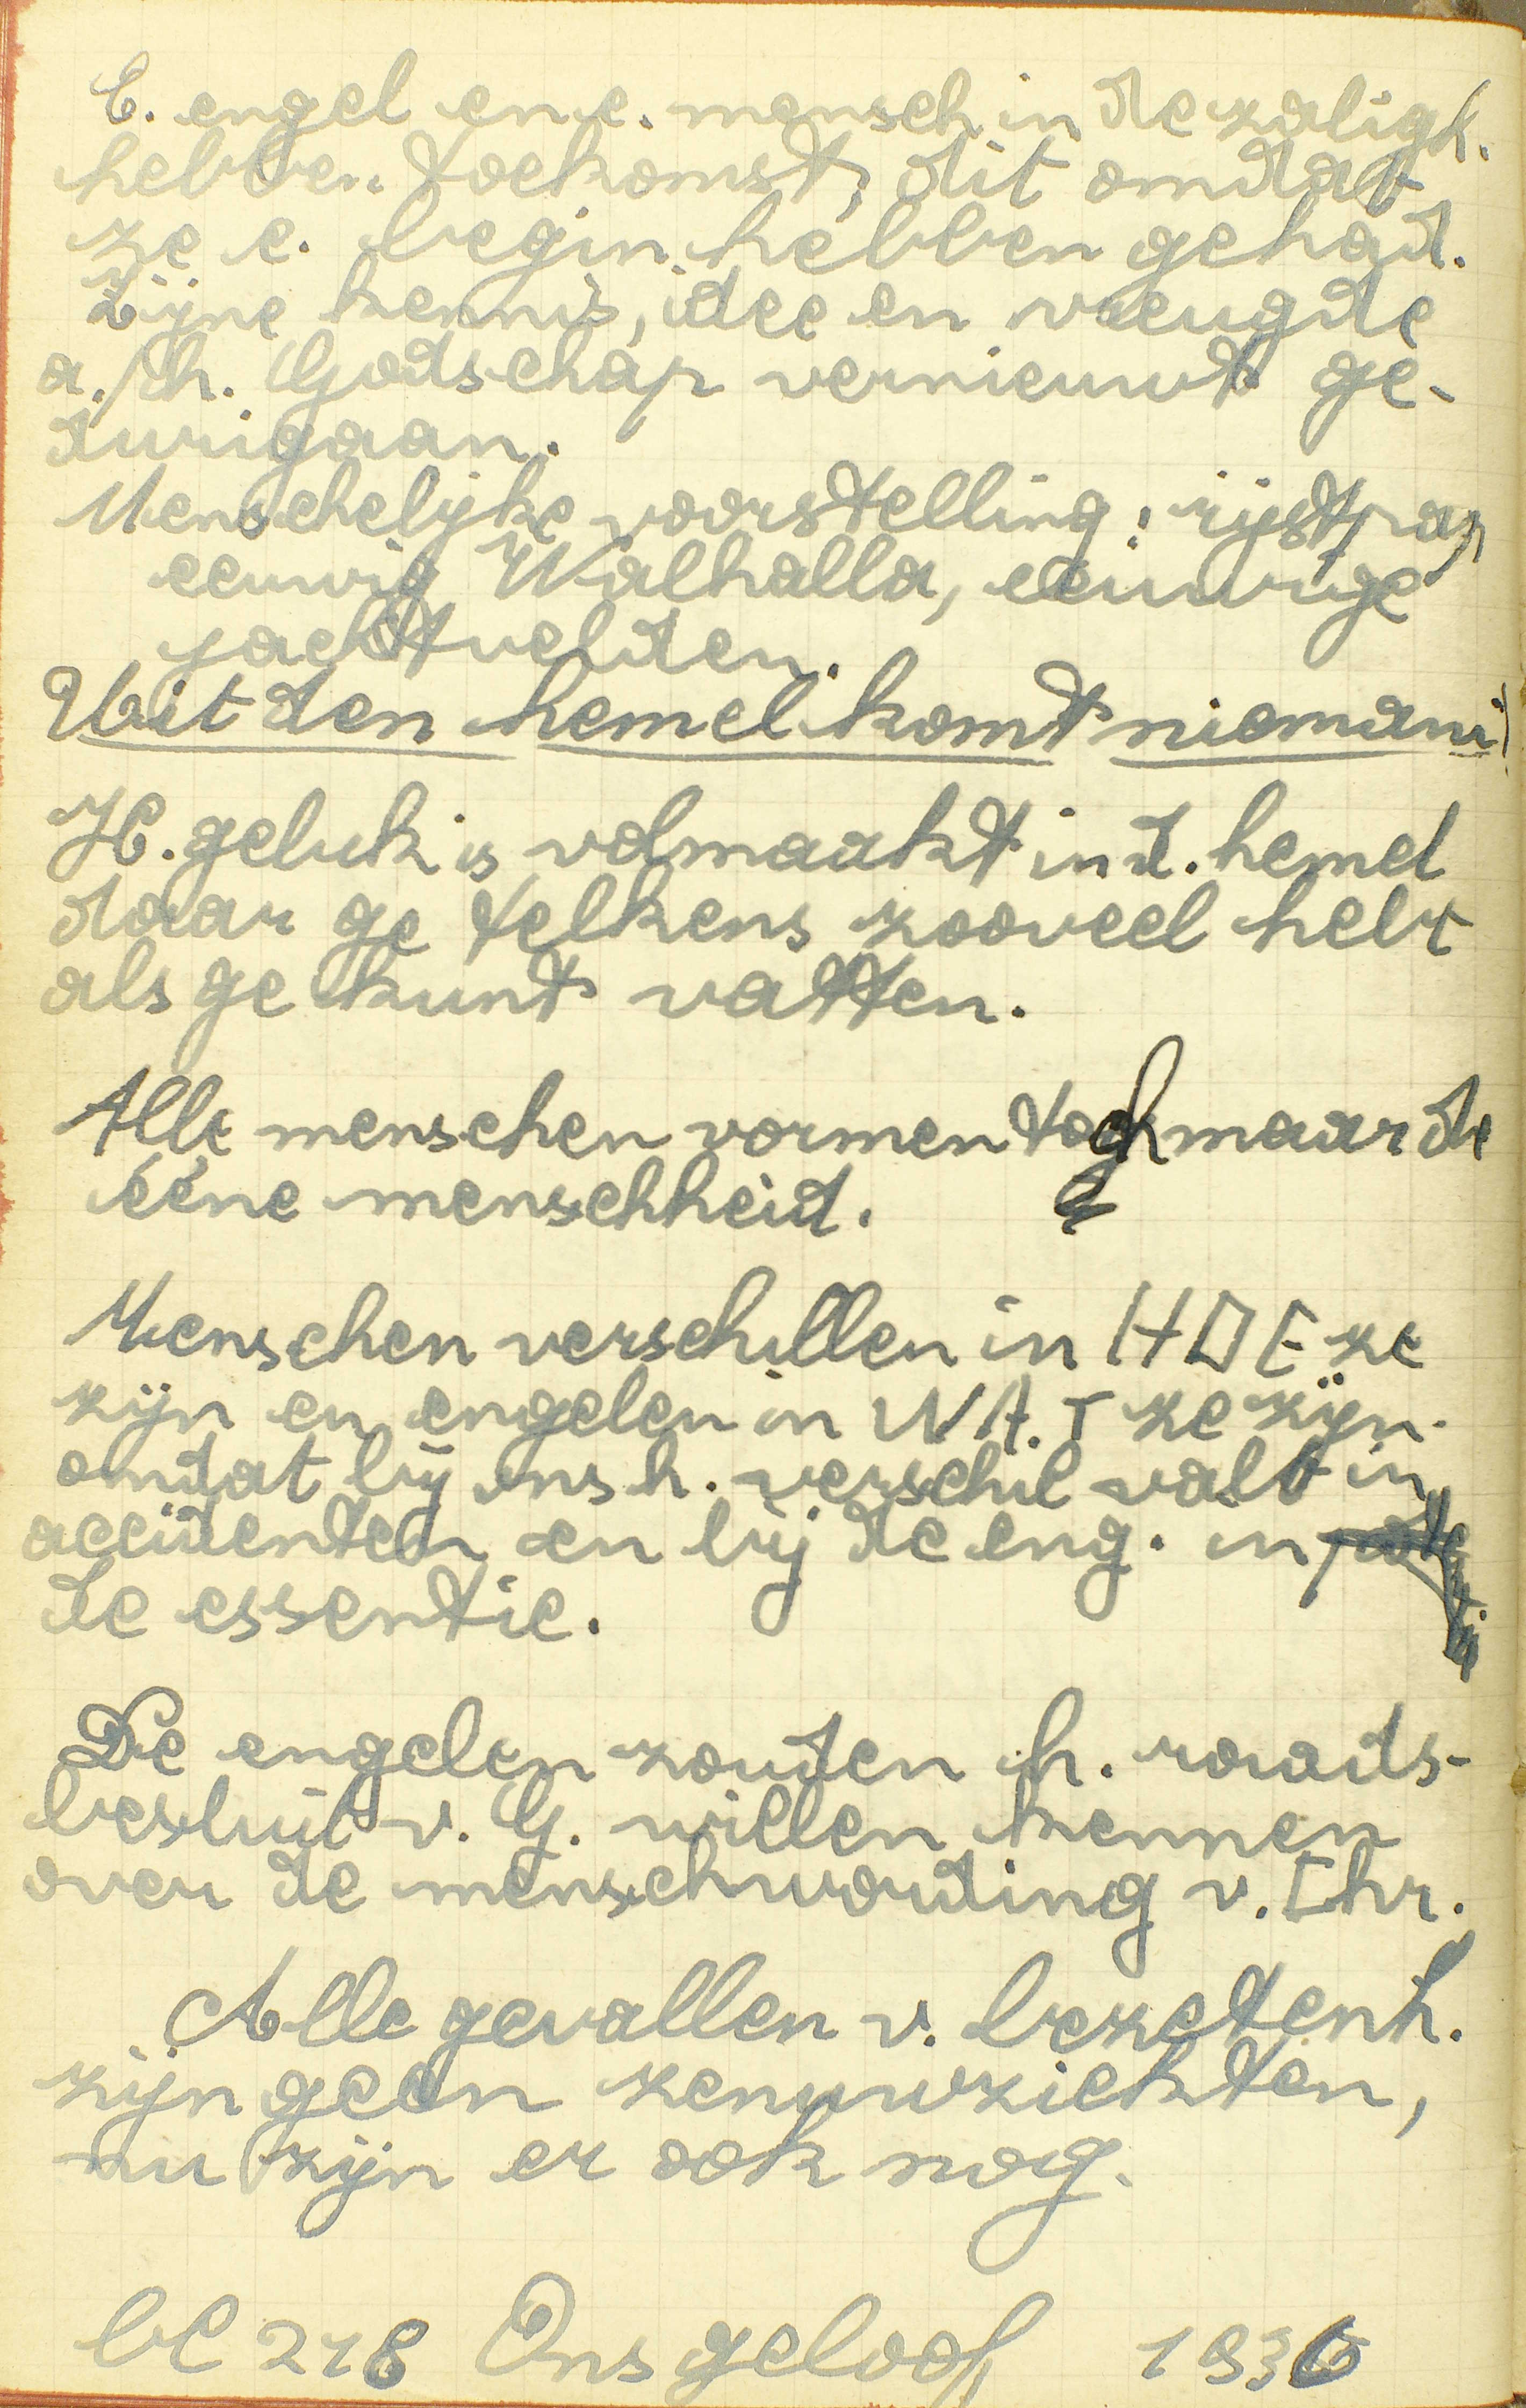 E. engel en e. mensch in de zaligh.
hebben toekomst, dit omdat
ze e. begin hebben gehad.
Zijne kennis, idee en vreugde
a./h. Godschap vernieuwt ge-
durigaan.
Menschelijke voorstelling: rijstpap
eeuwig Walhalla, eeuwige
jachtvelden.
Uit den hemel komt niemand
H. geluk is volmaakt in d. hemel
daar ge telkens zooveel hebt
als ge kunt vatten.
Alle menschen vormen toch maar de
ééne menschheid.
Menschen verschillen in HOE ze
zijn en engelen in WAT ze zijn.
omdat bij ons h. verschil valt in
accidenten en bij de eng. in
de essentie.
De engelen zouden h. raads-
besluit v. G. willen kennen
over de menschwording v. Chr.
Alle gevallen v. bezetenh.
zijn geen zenuwziekten,
nu zijn er ook nog.
bl 218 Ons geloof 1936